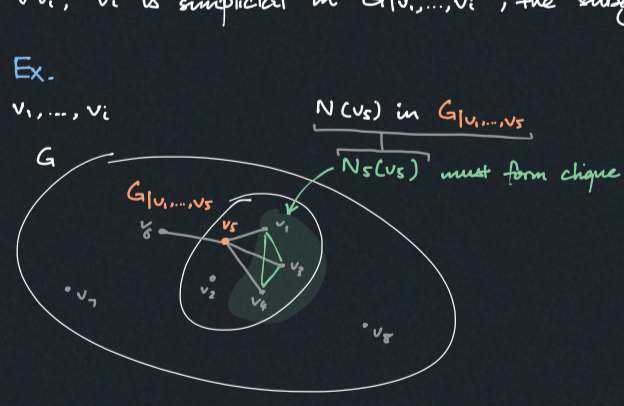 ∀vᵢ, vᵢ is simplicial in G|v₁,...,vᵢ, the
Ex.
v₁, ..., vᵢ
N(v₅) in G|v₁,...,v₅
G
N₅(v₅) must form clique
G|v₁,...,v₅
v₆
v₅
v₁
v₃
v₂
v₄
v₇
v₈